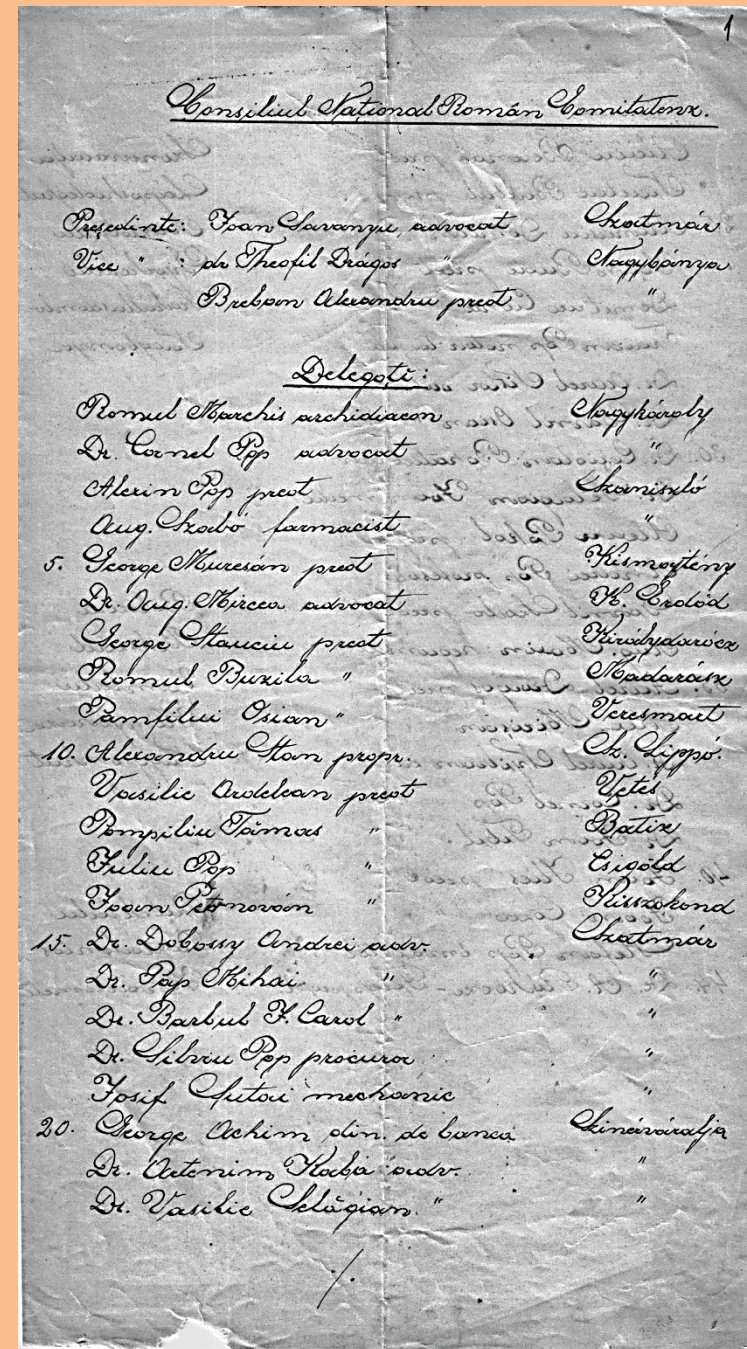 1
Consiliul Național Român Comitatenz.
Președinte: Ioan Savanyu advocat Szatmár
Vice " : dr Theofil Drágos " Nagybánya
Breban Alexandru preot "
Delegați:
Romul Marchis archidiacon Nagykároly
Dr. Cornel Pop advocat "
Alexin Pop preot Szaniszló
Aug. Szabo farmacist "
5. George Muresán preot Kismajtény
Dr. Aug. Mircea advocat K. Erdőd
George Stauciu preot Királydarócz
Romul Buzila " Mádarász
Pamfiliu Osian " Veresmart
10. Alexandru Stan propr. Sz. Lippó.
Vasilie Ardelean preot Vetés
Pompiliu Támas " Batiz
Iuliu Pop " Csigöld
Ioan Petrován " Kisszokond
15. Dr. Dobossy Andrei adv. Szatmár
Dr. Pap Mihai " "
Dr. Barbul I. Carol " "
Dr. Silviu Pop procuror "
Iosif Sutai mechanic "
20. George Achim din. de banca Szinérváralja
Dr. Artenim Kaba adv. "
Dr. Vasilie Selăgian. " "
./.